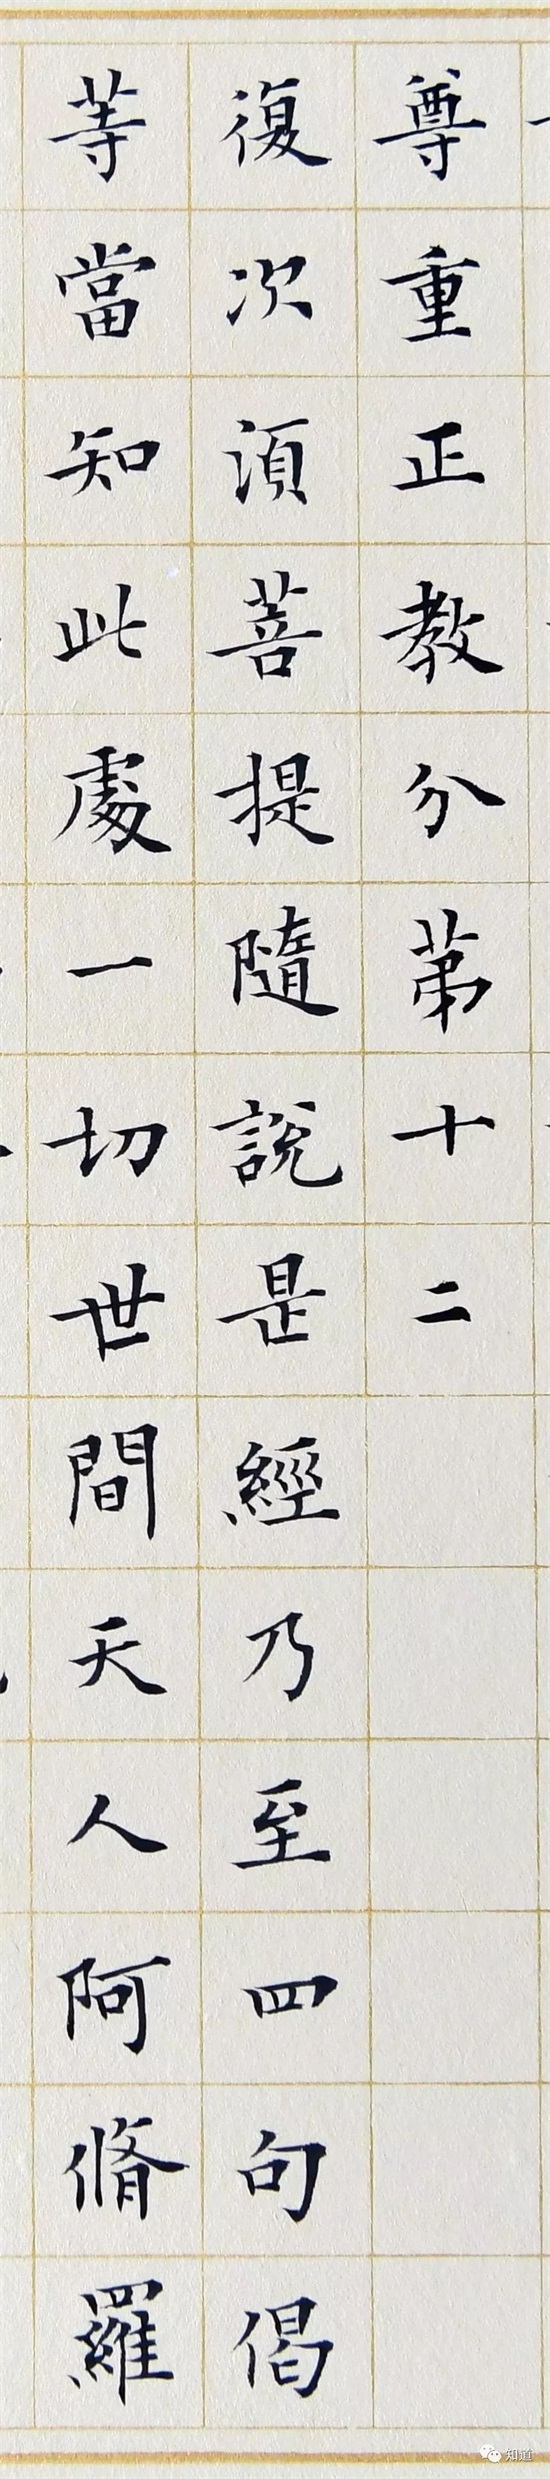 尊重正教分第十二
復次須菩提隨說是經乃至四句偈
等當知此處一切世間天人阿脩羅
知道